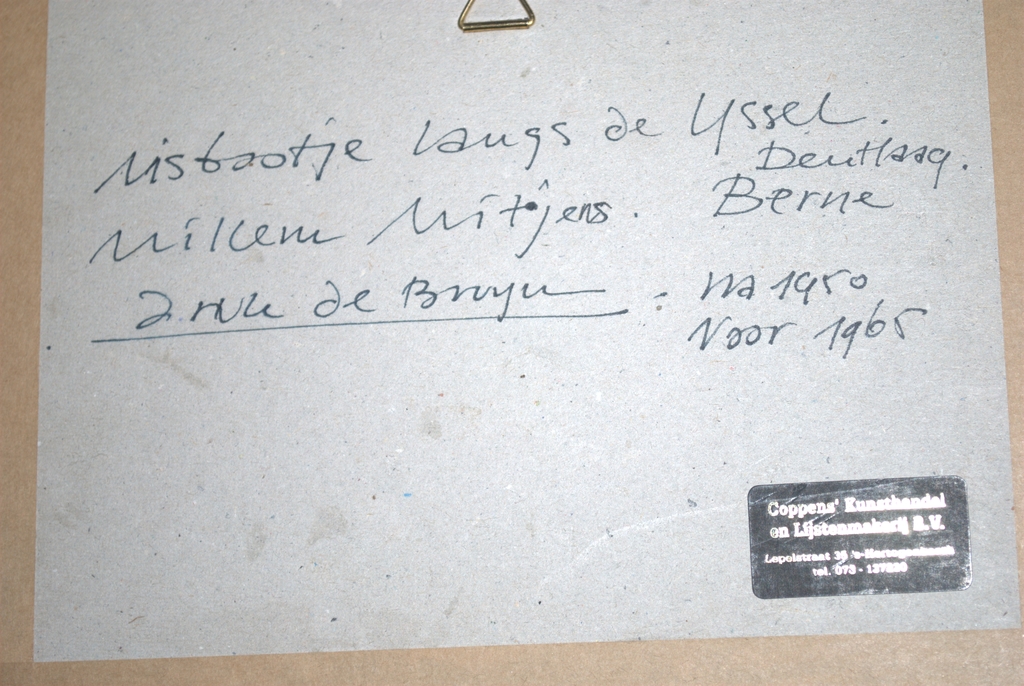 Visbootje langs de Yssel.
Den Haag.
Willem Witjens.
Berne
de Bruyn
na 1950
Voor 1965
Coppens' Kunsthandel
en Lijstenmakerij B.V.
's-Hertogenbosch
tel. 073 - 137820